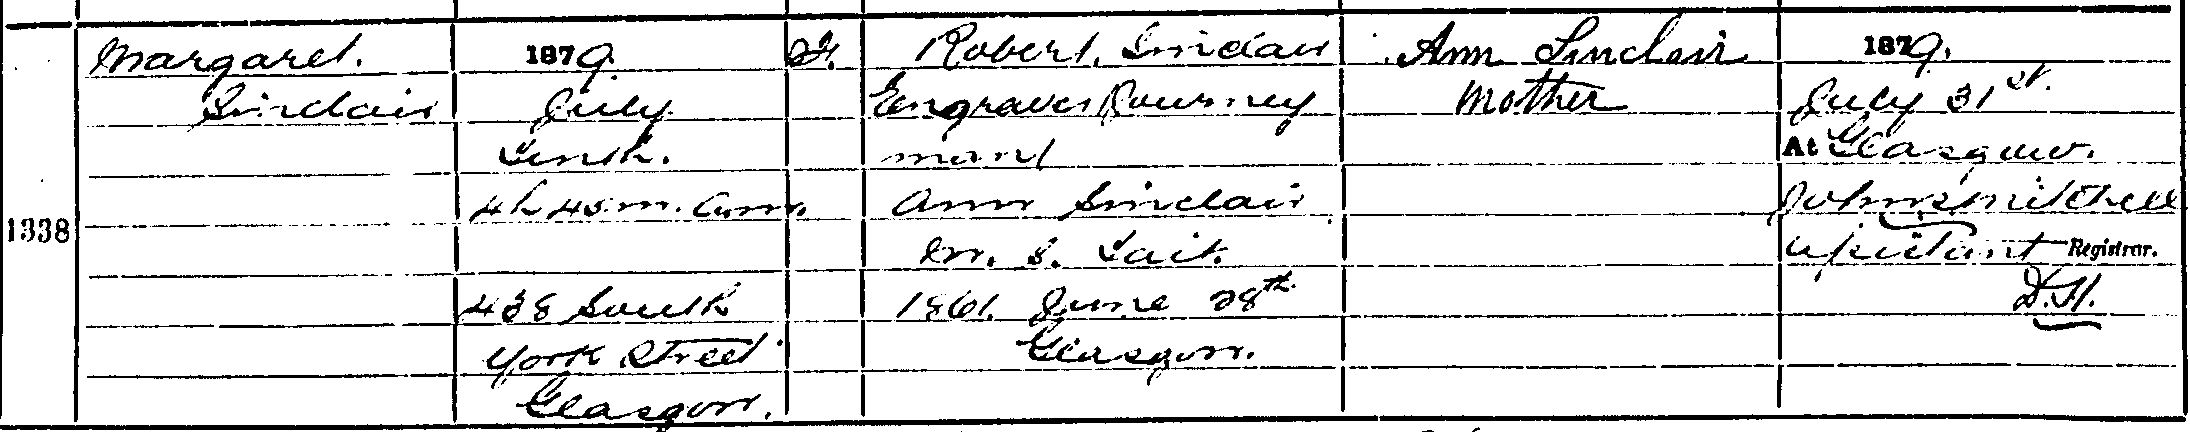 1338
Margaret
Sinclair
1879
July
Tenth.
4h 45 m. a.m.
438 South
York Street
Glasgow.
F.
Robert Sinclair
Engraver Journey
man
Ann Sinclair
M. S. Tait.
1861. June 28th
Glasgow.
Ann Sinclair
Mother
1879.
July 31st.
At Glasgow.
John Mitchell
Assistant Registrar.